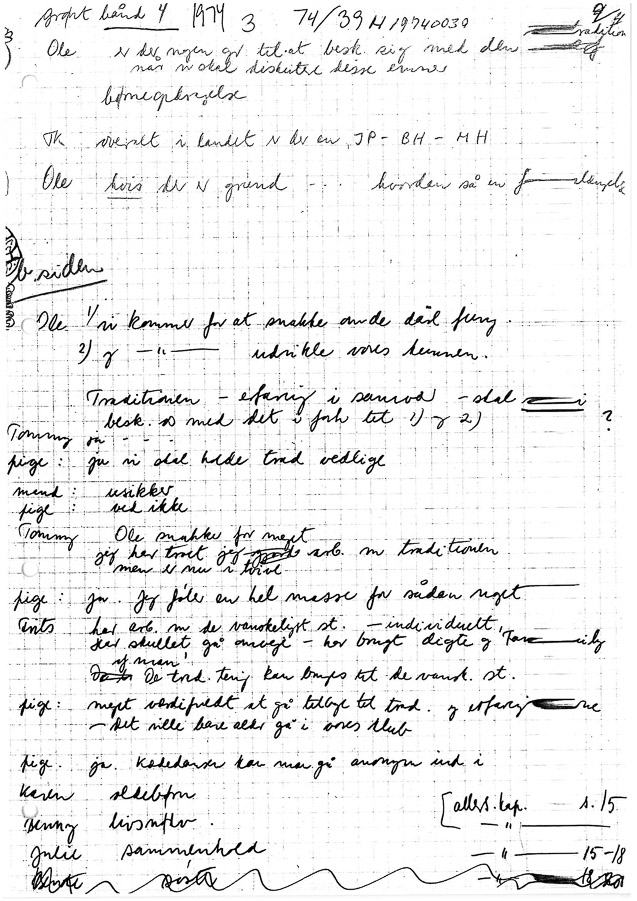 bånd 4 1974 3 74/39 H 19740039 9/4
tradition
Ole er der nogen gr. til at besk. sig med den
når vi skal diskutere disse emner
børneopdragelse
TK overalt i landet er der en JP - BH - MH
Ole hvis der er grund - - - hvordan så en f
b. siden
Ole 1) vi kommer for at snakke om de dårl fung.
2) y — " — udvikle vores emnen.
Traditionen - erfarig i samvær - skal i
besk. os med det i forh til 1) y 2) ?
Tommy ja - - -
pige: ja vi skal holde trad vedlige
mand: usikker
pige: ved ikke
Tommy Ole snakker for meget
jeg har troet jeg arb. m traditionen
men er nu i tvivl
pige: ja. Jeg føler en hel masse for sådan noget
har arb. m de vanskeligst st. - individuelt,
skullet gå - har brugt digte y
y man'
De trad. ting kan bruges til de vansk. st.
pige: meget værdifuldt at gå tilbage til trad. y erfarig ne
- Det ville bare aldr gå i vores klub
pige. ja. Kædedanser kan man gå anonym ind i
Karen ældebørn [allers. kap. s. 15
Benny livsnerv. — " —
Julie sammenhold — " — 15-18
— " — 18